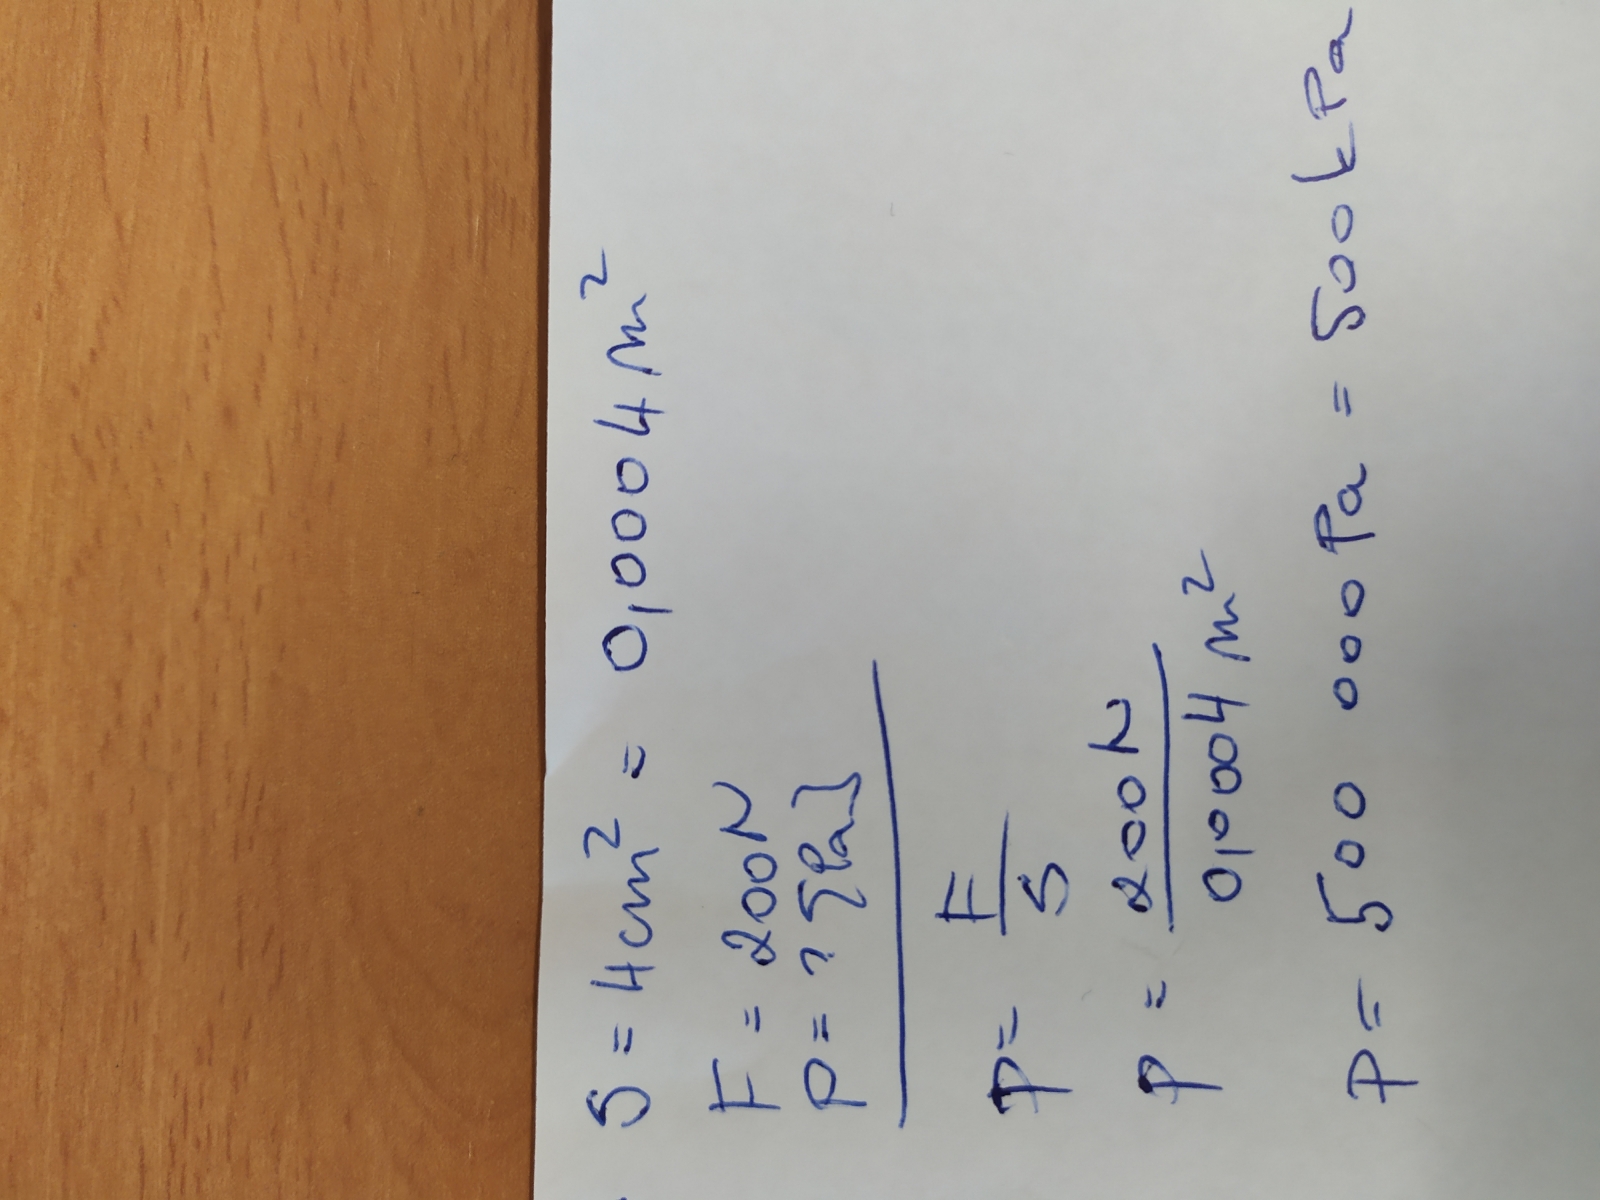 S = 4cm² = 0,0004 m²
F = 200N
P = ? [Pa]
P = F/S
P = 200N/0,0004 m²
P = 500 000 Pa = 500 kPa